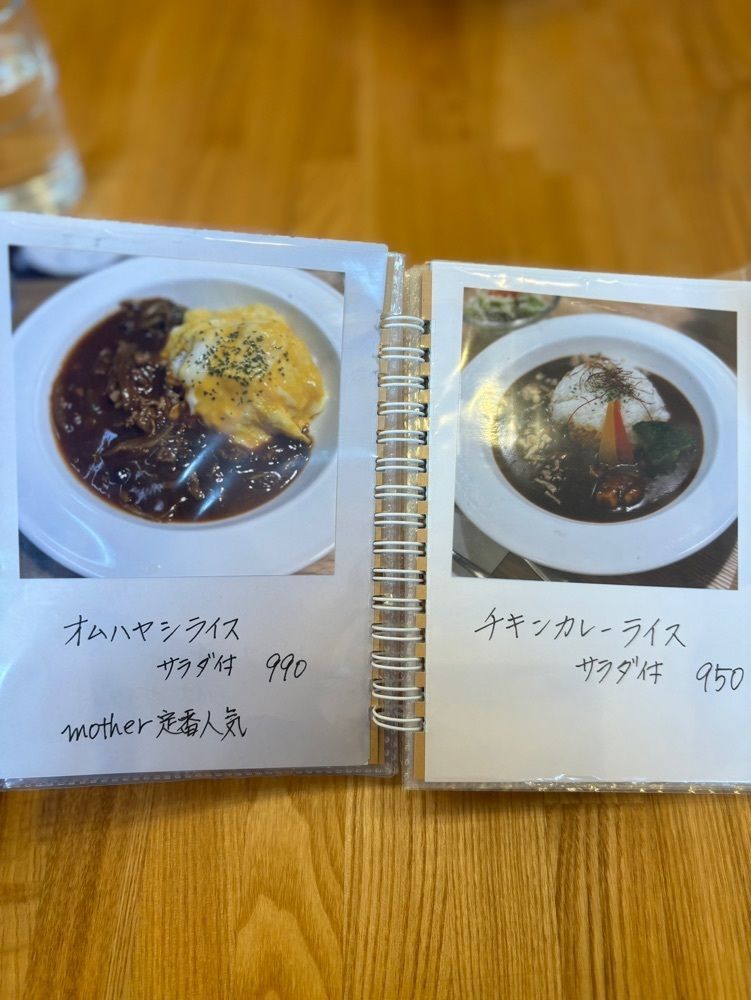 オムハヤシライス
サラダ付 990
mother定番人気
チキンカレーライス
サラダ付 950